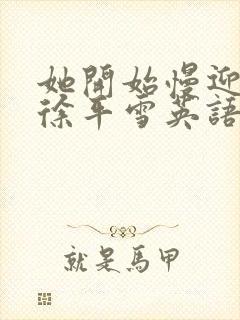 她開始慢迎
徐平雪英語
就是馬甲